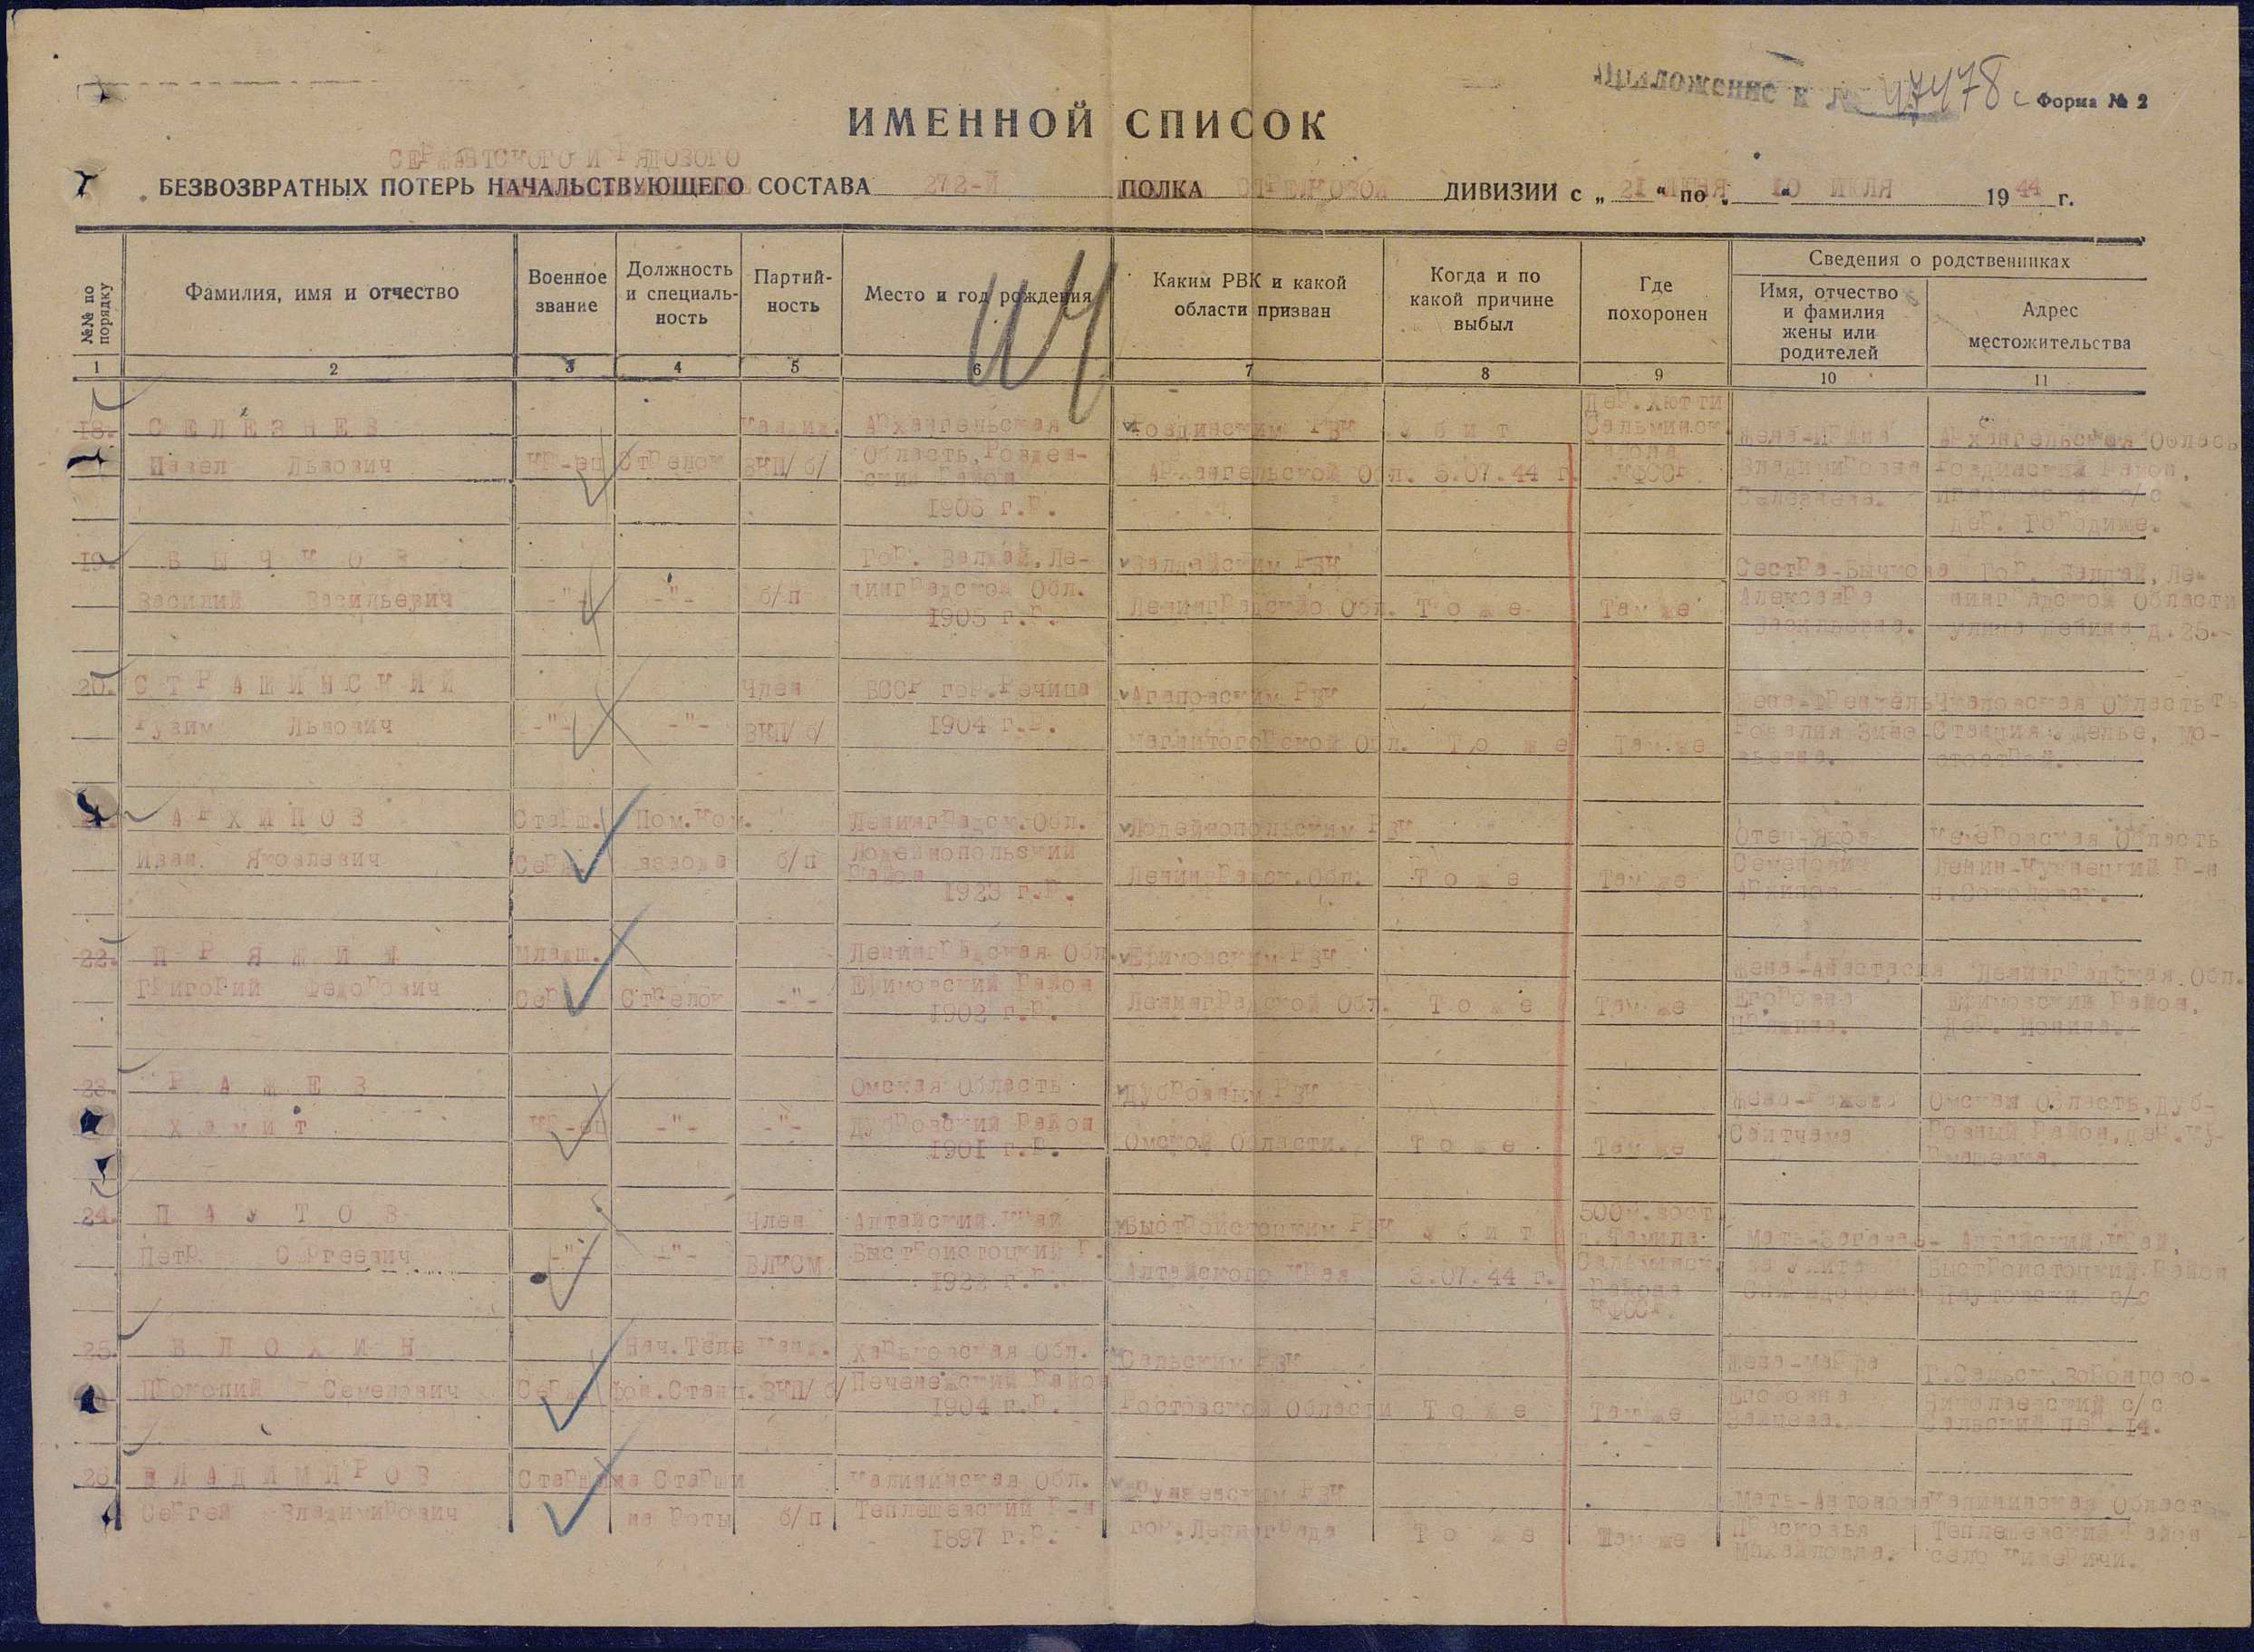 Приложение к № 47478с Форма № 2
ИМЕННОЙ СПИСОК
СЕРЖАНТСКОГО И РЯДОВОГО
БЕЗВОЗВРАТНЫХ ПОТЕРЬ НАЧАЛЬСТВУЮЩЕГО СОСТАВА 272-Й ПОЛКА СТРЕЛКОВОЙ ДИВИЗИИ с „ 21 ИЮНЯ “ по „ 10 ИЮЛЯ “ 1944 г.
№№ по порядку
Фамилия, имя и отчество
Военное звание
Должность и специаль-ность
Партий-ность
Место и год рождения
Каким РВК и какой области призван
Когда и по какой причине выбыл
Где похоронен
Сведения о родственниках
Имя, отчество и фамилия жены или родителей
Адрес местожительства
1 2 3 4 5 6 7 8 9 10 11
18. СЕЛЕЗНЕВ
Павел Львович
Кр-ец Стрелок
Кандид.
ВКП/б/
Архангельская
Область, Ровден-
ский Район
1906 г.р.
Ровдинским РВК
Архангельской Обл.
Убит
5.07.44 г.
Дер. Хютти
Сальминск.
Района
КФССР
Жена-
Владимировна
Селезнева.
Архангельская Область
Ровдинский Район,
с/с
Дер. Городище.
19. БЫЧКОВ
Василий Васильевич
-"- -"- б/п
Гор. Валдай, Ле-
нинградской Обл.
1905 г.р.
Валдайским РВК
Ленинградско Обл.
Тоже
Там же
Сестра-Бычкова
Александра
Васильевна.
Гор. Валдай, Ле-
нинградской Области
улица Ленина д.25.-
20. СТРАШИНСКИЙ
Рувим Львович
-"- -"-
Член
ВКП/б/
БССР гор. Речица
1904 г.р.
Агаповским РВК
Магнитогорской Обл.
Тоже
Там же
Розалия
Чкаловская Область
Станция
21. АРХИПОВ
Иван Яковлевич
Старш.
Серж.
Пом.Ком.
взвода
б/п
Ленинградск. Обл.
Лодейнопольский
Район
1923 г.р.
Лодейнопольским РВК
Ленинградск. Обл.
Тоже
Там же
Отец-Яков
Семенович
Архипов
Кемеровская Область
Ленин-Кузнецкий Р-н
22. ПРЯЖИН
Григорий Федорович
Младш.
Серж.
Стрелок
-"-
Ленинградская Обл.
Ефимовский Район
1902 г.р.
Ефимовским РВК
Ленинградской Обл.
Тоже
Там же
Жена-Анастасия
Егоровна
Пряжина.
Ленинградская Обл.
Ефимовский Район,
Дер.
23. РАЖЕВ
Хамит
Кр-ец -"- -"-
Омская Область
Дубровский Район
1901 г.р.
Дубровным РВК
Омской Области.
Тоже
Там же
Жена-Ражева
Омская Область, Дуб-
ровный Район, дер.
24. ПАУТОВ
Петр Сергеевич
-"- -"-
Член
ВЛКСМ
Алтайский Край
Быстроистоцкий Р.
1922 г.р.
Быстроистоцким РВК
Алтайского Края
Убит
3.07.44 г.
500м.вост.
Сальминск.
Района
КФССР.
Мать-
Алтайский Край,
Быстроистоцкий Район
Паутовский с/с
25. БЛОХИН
Прокопий Семенович
Серж.
Нач.Теле
фон.Станц.
Канд.
ВКП/б/
Харьковская Обл.
Печенежский Район
1904 г.р.
Сальским РВК
Ростовской Области
Тоже
Там же
Жена-Марфа
Егоровна
Зайцева.
Г.Сальск, Воронцово-
Николаевский с/с
Сальский пер. 14.
26. ВЛАДИМИРОВ
Сергей Владимирович
Старшина
Старши
на Роты
б/п
Калининская Обл.
Теплешевский Р-н
1897 г.р.
Фрунзенским РВК
гор. Ленинграда
Тоже
Там же
Мать-Антонова
Прасковья
Михайловна.
Калининская Область
Теплешевский Район
село Киверичи.